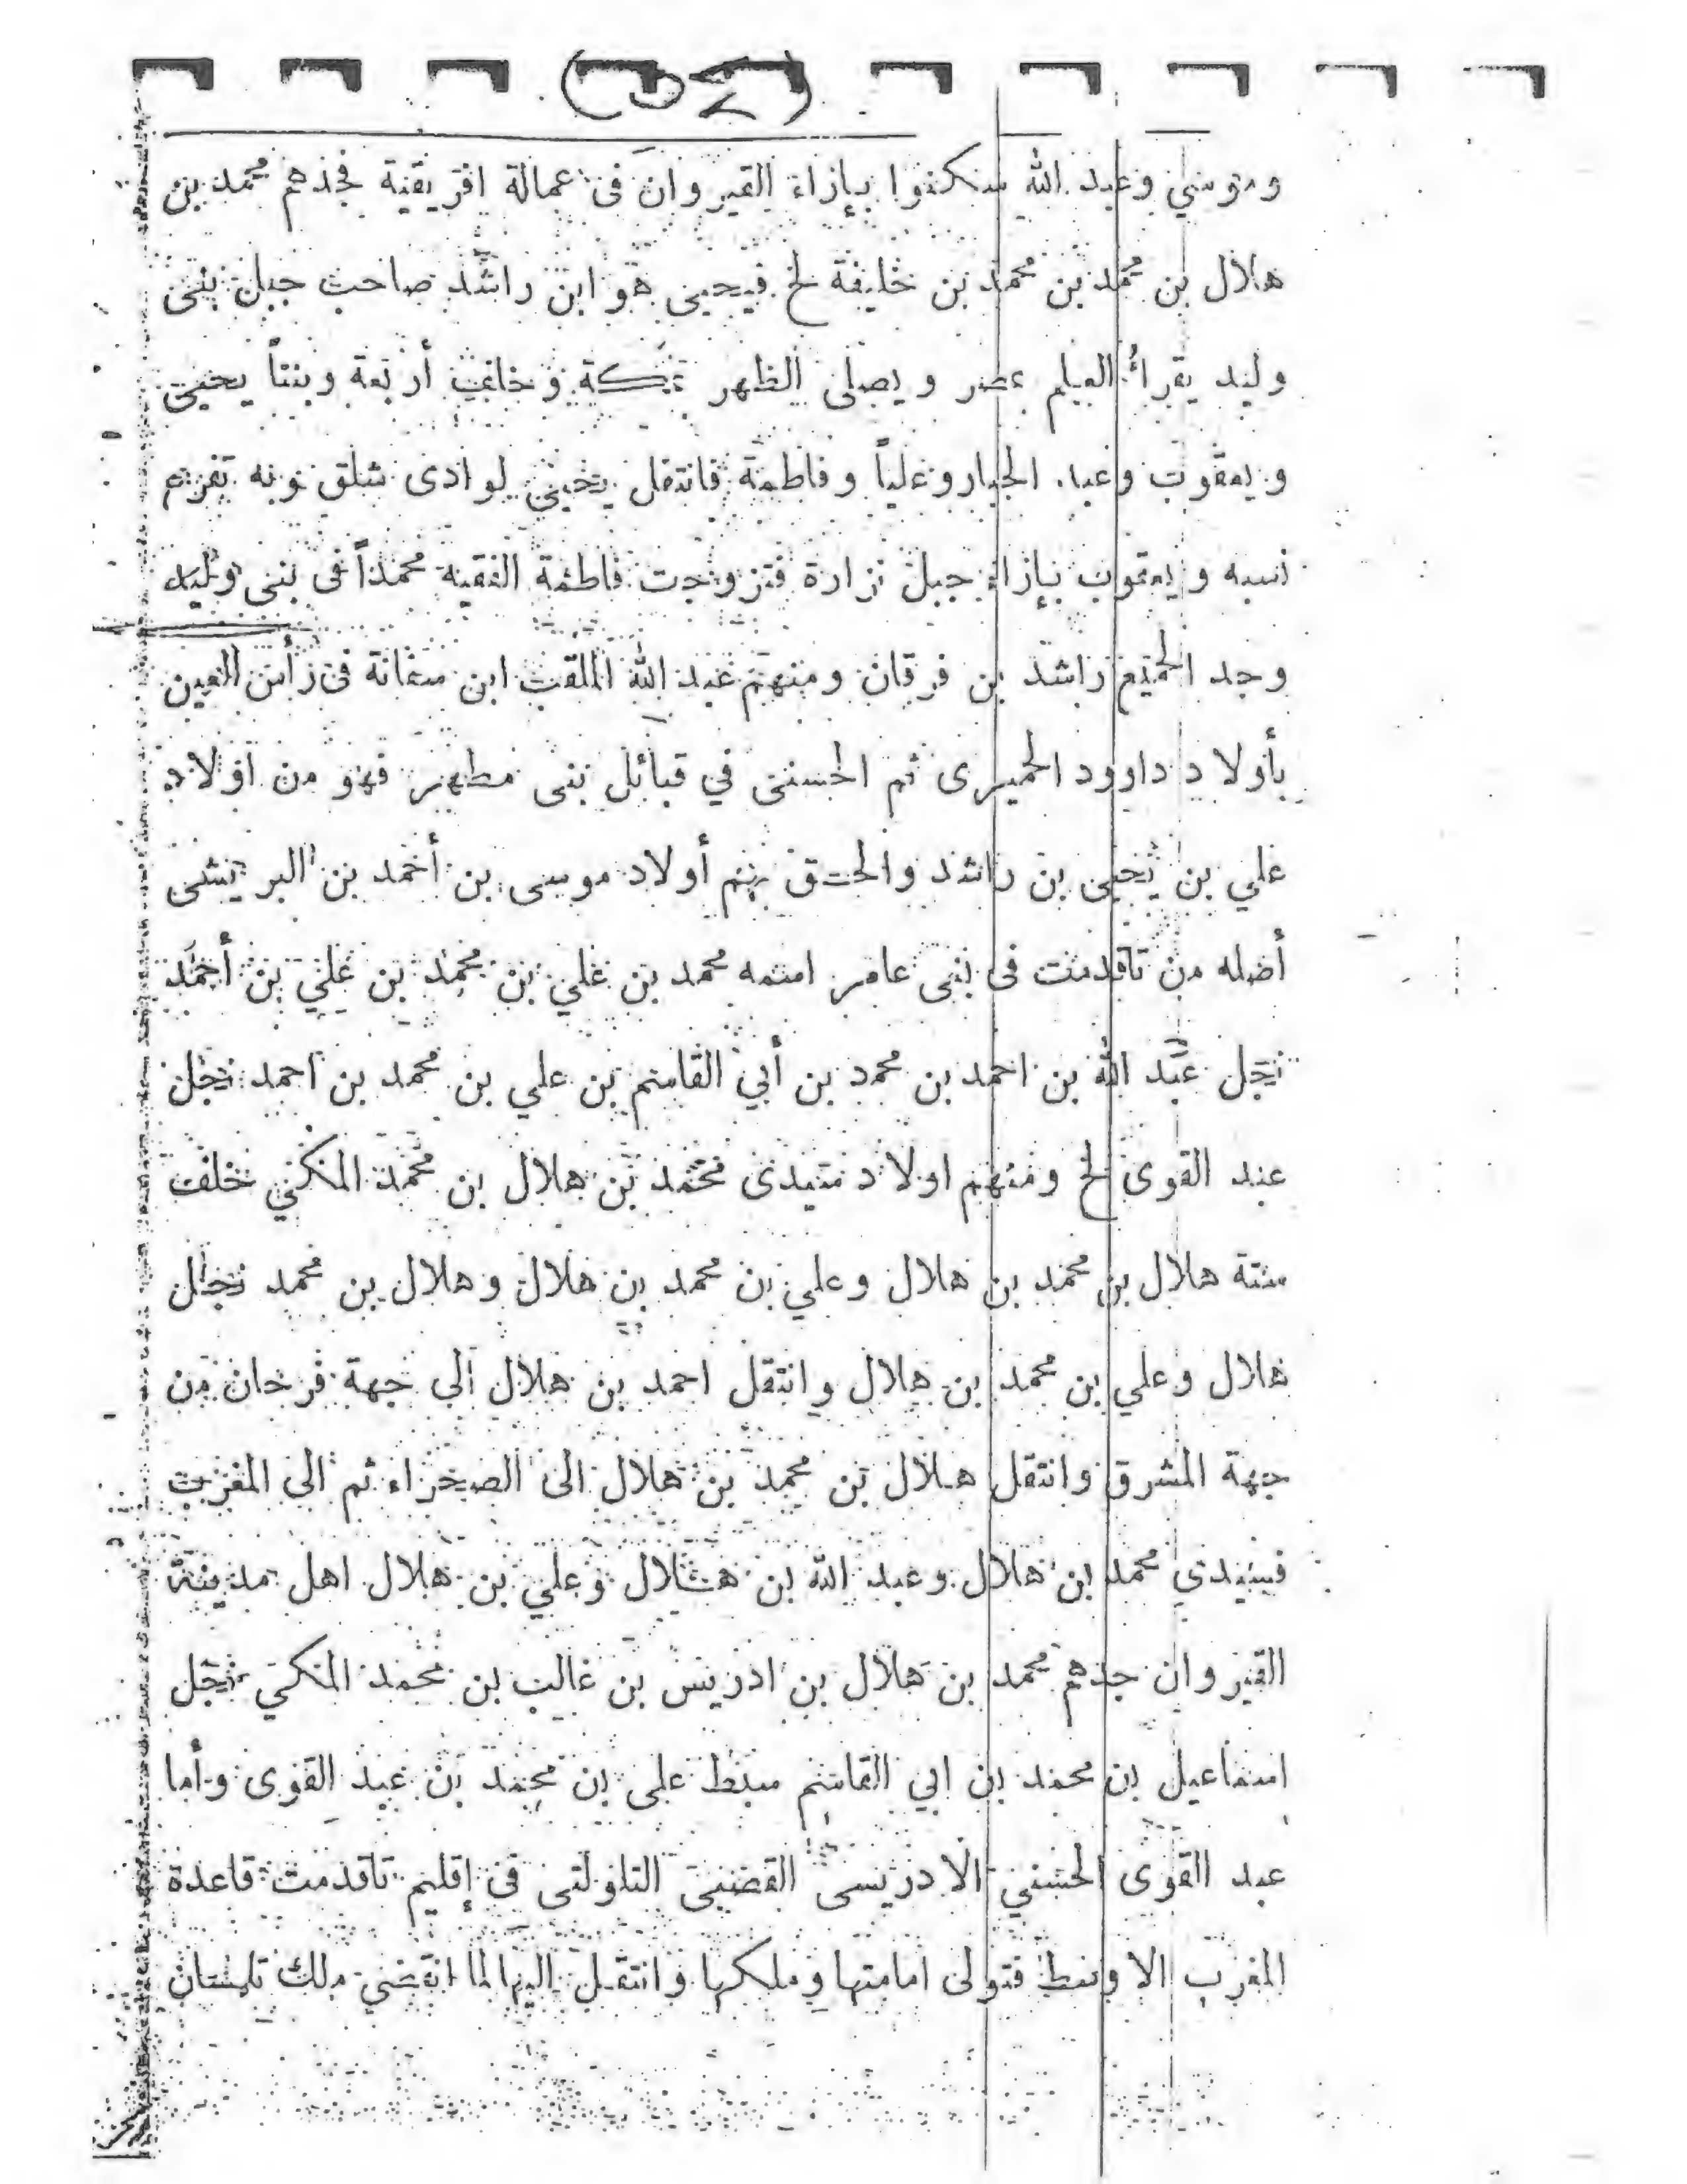 وموسي وعبد الله سكنوا بإزاء القيروان فى عمالة افريقية فجدهم محمد بن
هلال بن محمد بن محمد بن خليفة لخ فيحيى هو ابن راشد صاحب جبل بنى
وليد يقرأ العلم عصر ويصلى الظهر بمكة وخلف أربعة وبنتاً يحيى
ويعقوب وعبد الجبار وعلياً وفاطمة فانتقل يحيى لوادى شلق وبه
نسبه ويعقوب بإزاء جبل تزارة فتزوجت فاطمة الفقيه محمداً فى بنى وليد
وجد الجميع راشد بن فرقان ومنهم عبد الله الملقب ابن سعانة فى رأس العين
بأولاد داوود الحميرى ثم الحسنى في قبائل بنى مطهر فهو من اولاد
علي بن يحيى بن راشد والحق بهم أولاد موسى بن أحمد بن
أصله من تاقدمت فى بنى عامر اسمه محمد بن علي بن محمد بن علي بن أحمد
نجل عبد الله بن احمد بن محمد بن أبي القاسم بن علي بن محمد بن احمد نجل
عبد القوى لخ ومنهم اولاد سيدى محمد بن هلال بن محمد المكني خلف
ستة هلال بن محمد بن هلال وعلي بن محمد بن هلال وهلال بن محمد نجل
هلال وعلي بن محمد بن هلال وانتقل احمد بن هلال الى جهة فرجان من
جهة المشرق وانتقل هلال بن محمد بن هلال الى الصحراء ثم الى المغرب
فسيدي محمد بن هلال وعبد الله بن هلال وعلي بن هلال اهل مدينة
القيروان جدهم محمد بن هلال بن ادريس بن غالب بن محمد المكي نجل
اسماعيل بن محمد بن ابي القاسم سبط على بن محمد بن عبد القوى وأما
عبد القوى الحسني الادريسى القصبى التاولتى فى إقليم تاقدمت قاعدة
المغرب الاوسط فتولى امامتها وملكها وانتقل اليها لما انقضي ملك تلمسان